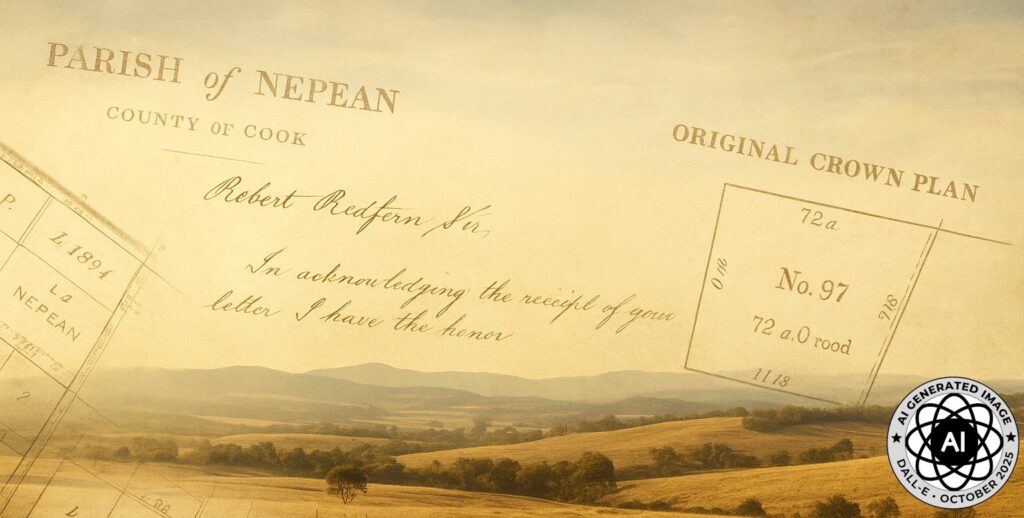 PARISH of NEPEAN
COUNTY OF COOK
Rebert Redfern Sir,
In acknowledging the receipl of your
letter I have the honor
P.
L, 1894
La
NEPEAN
ORIGINAL CROWN PLAN
72a
No. 97
72 a.0 rood
1118
AI GENERATED IMAGE
AI
DALL-E • OCTOBER 2025